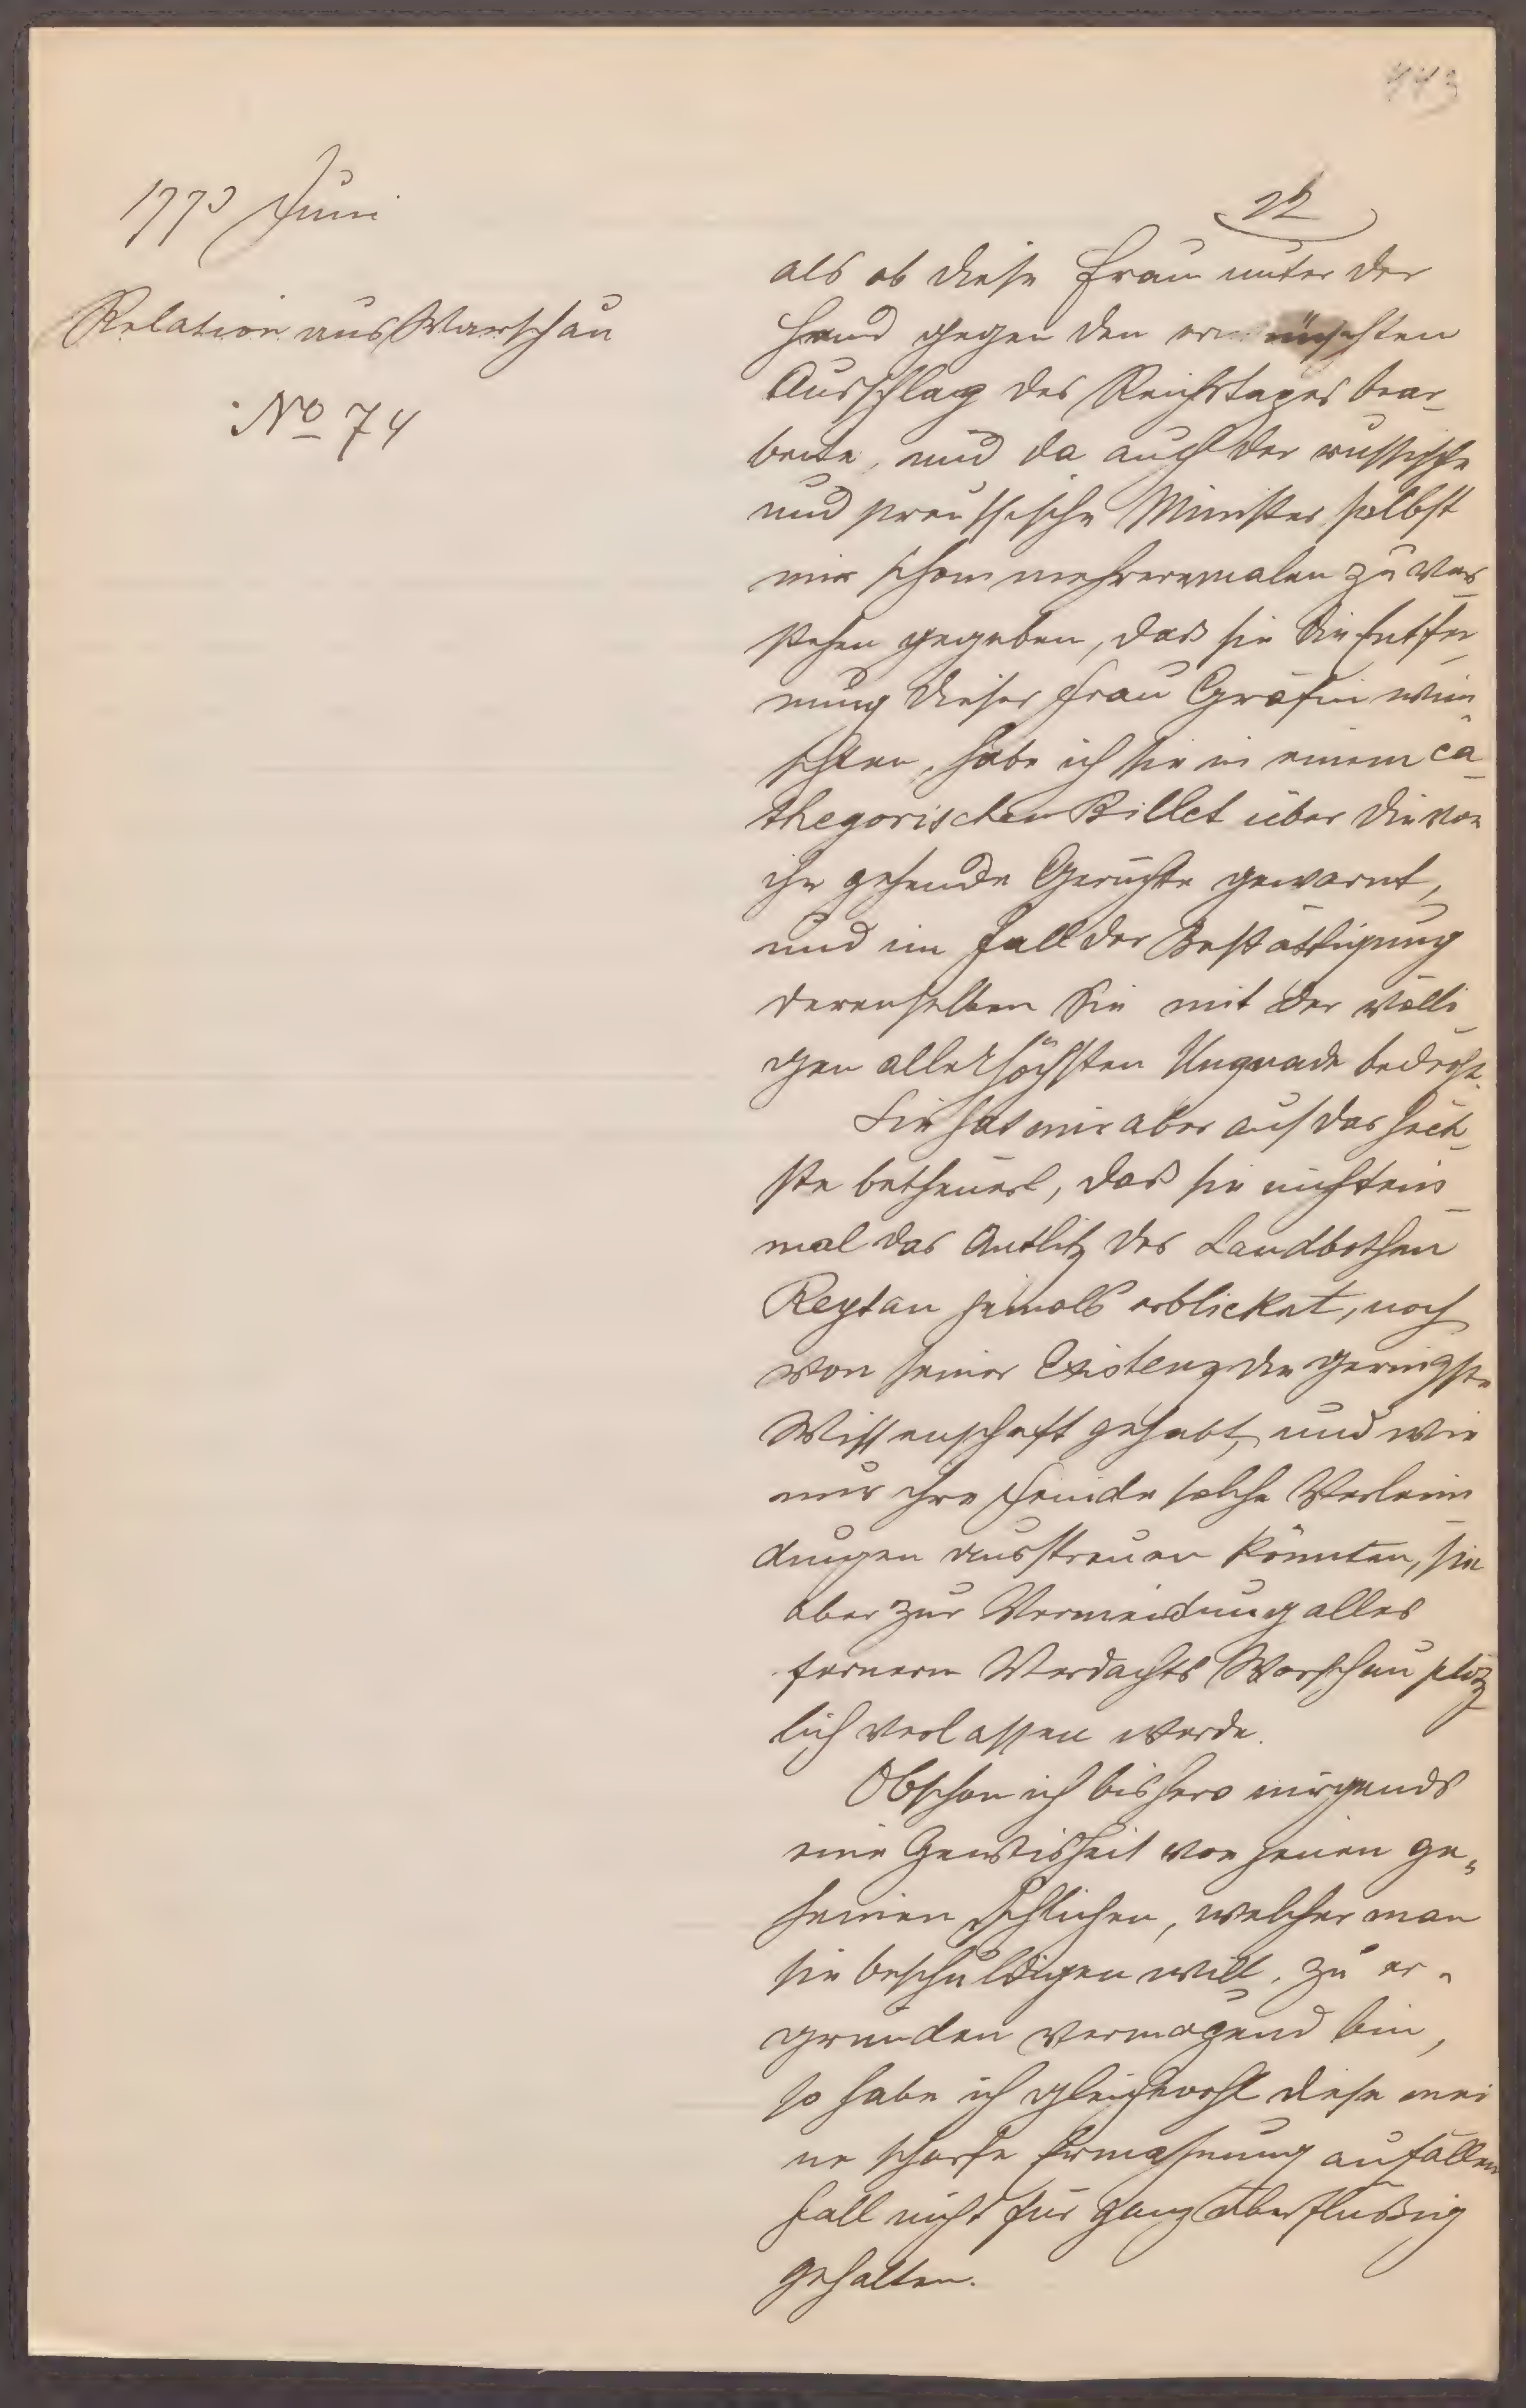 1773 Juni
Relation aus Warschau
No 74
443
22
als ob diese Frau unter der
Hand gegen den erwünschten
Ausschlag des Reichstages bear-
beite, und da auch der russische
und preussische Minister selbst
mir schon mehreremalen zu ver-
stehen gegeben, dass sie die Entfer-
nung dieser Frau Gräfin wün-
schten, habe ich sie in einem ca-
thegorischen Billet über die von
ihr gehende Gerüchte gewarnt,
und im Fall der Bestättigung
derenselben Sie mit der völli-
gen allerhöchsten Ungnade bedroht.
Sie hat mir aber auf das höch-
ste betheuert, dass sie nicht ein-
mal das Antlitz des Landbothen
Reytan jemals erblicket, noch
von seiner Existenz die geringste
Wissenschaft gehabt, und wie
nur ihre Feinde solche Verleüm-
dungen ausstreuen könnten, sie
aber zur Vermeidung alles
fernern Verdachts Warschau plötz-
lich verlassen werde.
Obschon ich bishero nirgends
eine Gewisheit von jenen ge-
heimen Schlichen, welcher man
sie beschuldigen will, zu er-
gründen vermögend bin,
so habe ich gleichwohl diese mei-
ne scharfe Ermahnung auf allen
Fall nicht für ganz überflüssig
gehalten.